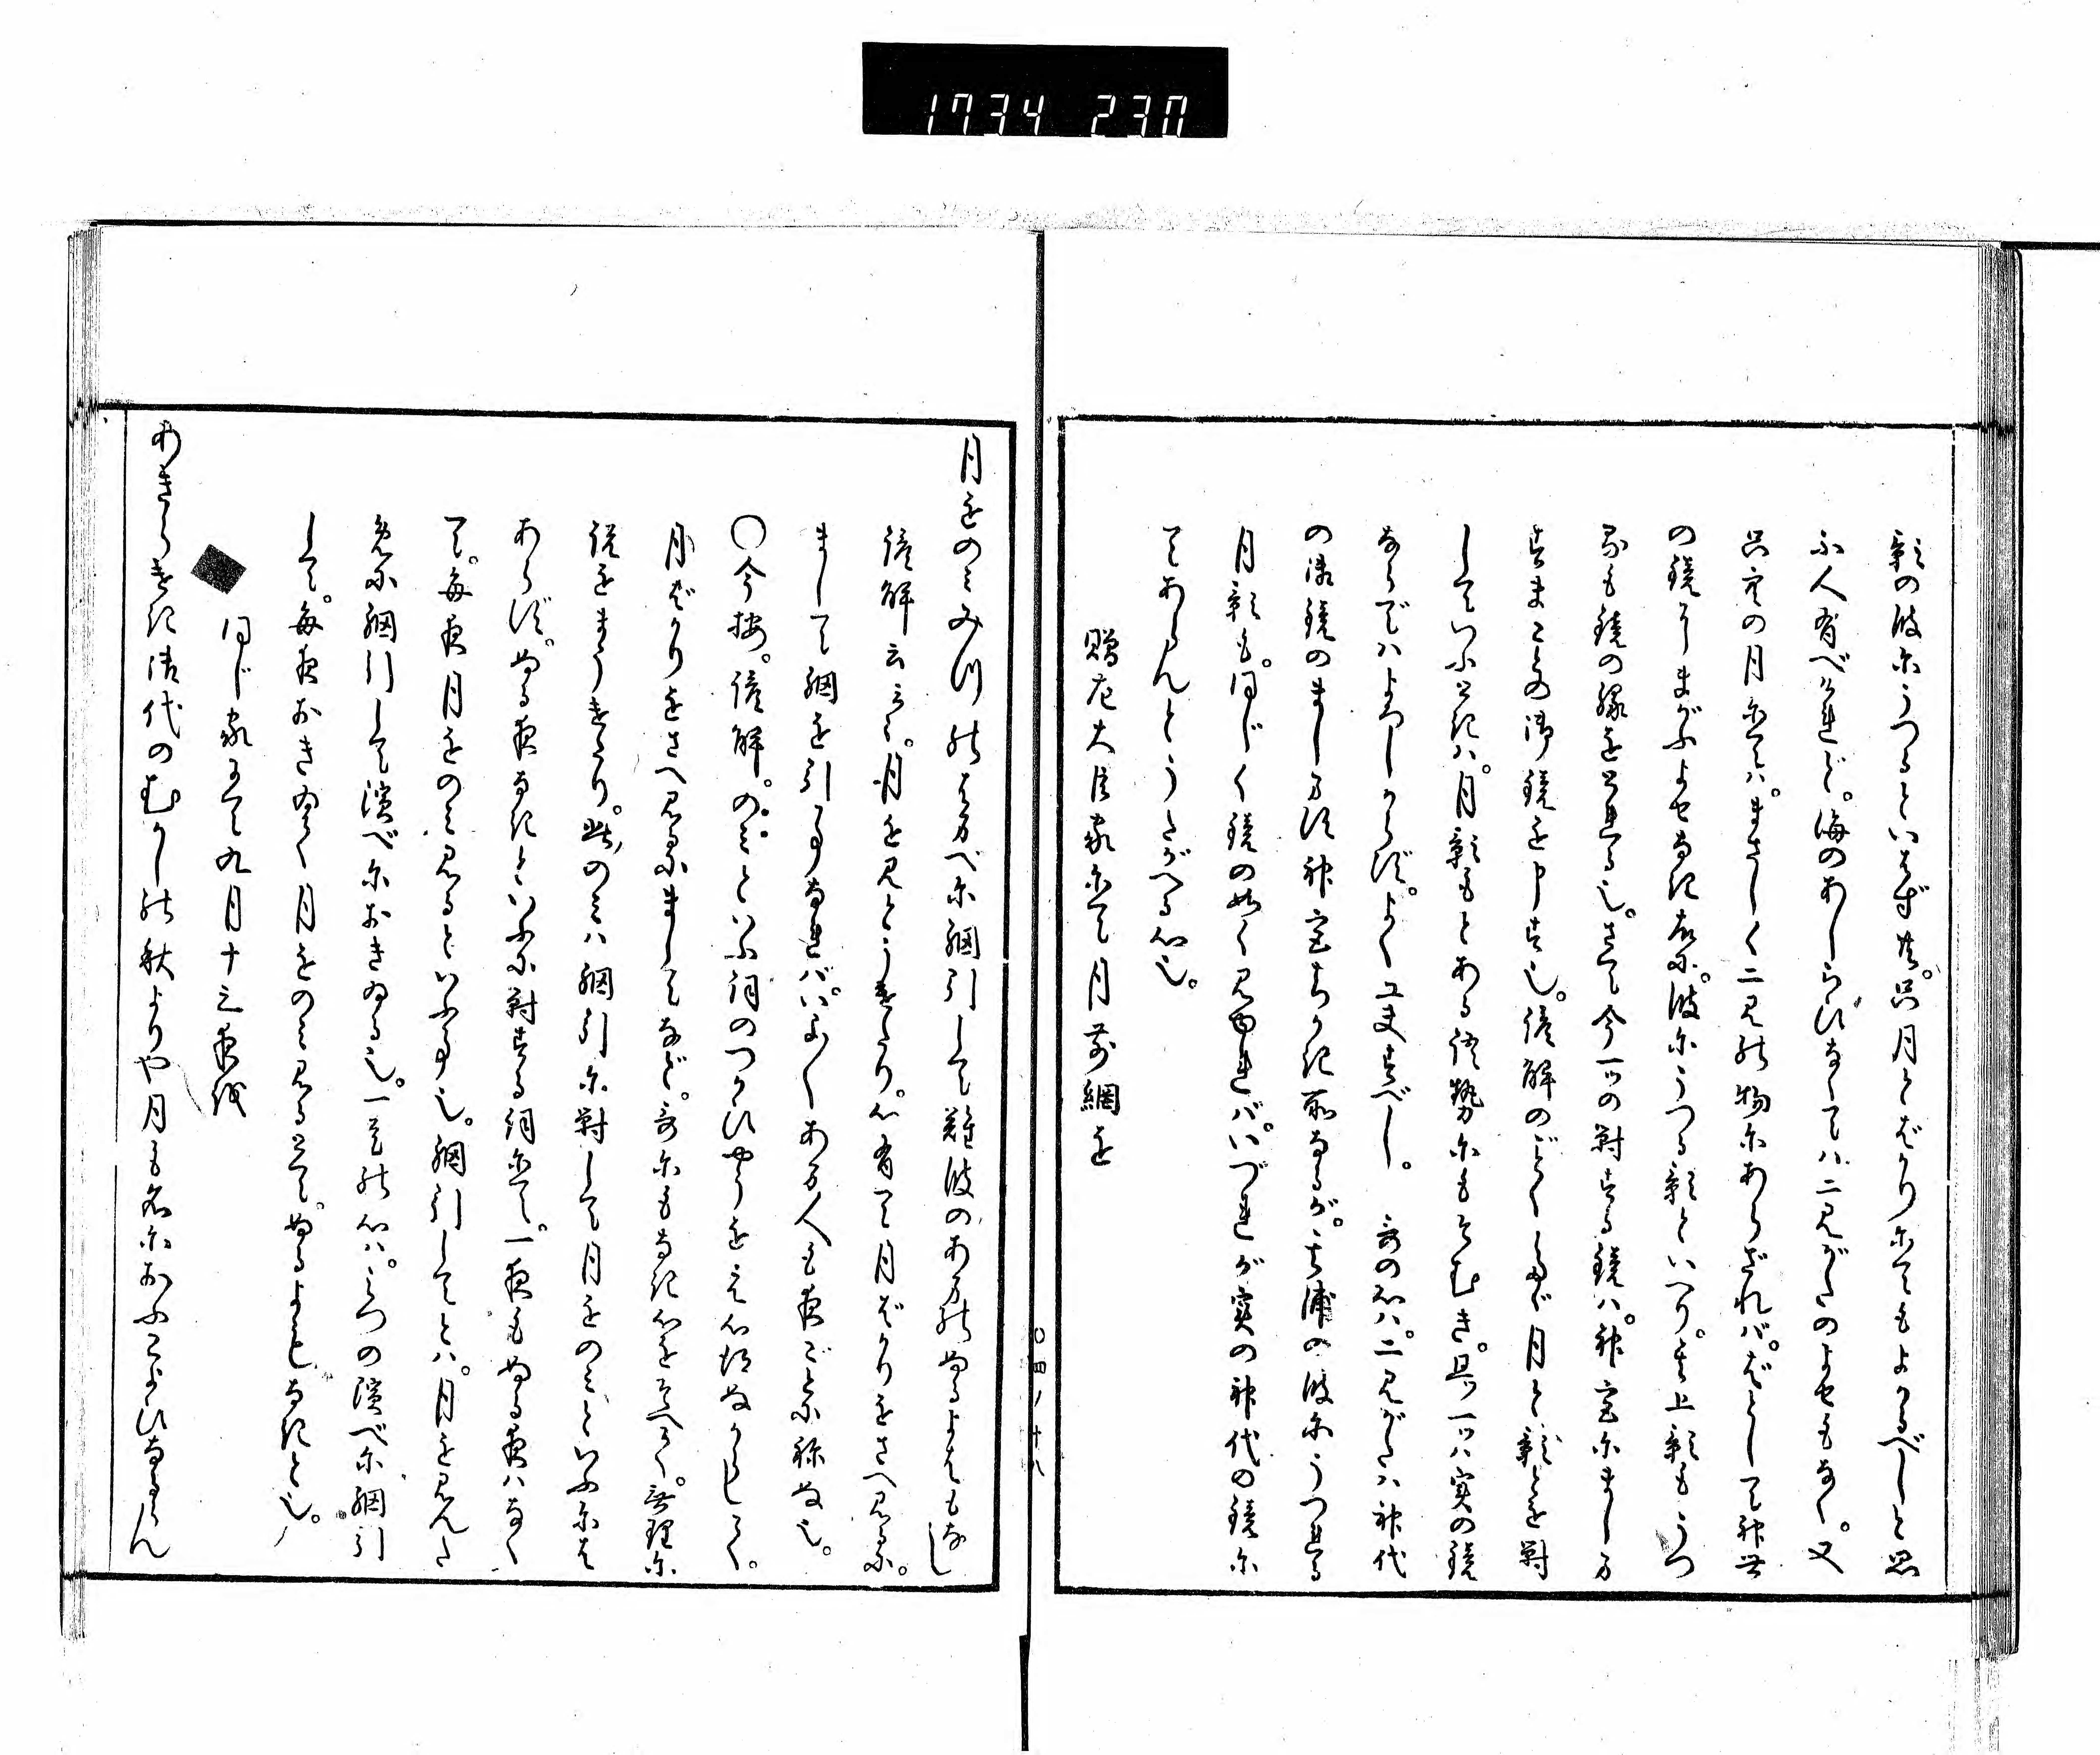 1734 230
影の波にうつるといはず共。只月とばかりにてもよかるべしと思
ふ人有べけれど。海のあしらひなくてハ二見がたのよせもなく。又
只空の月にてハ。まさしく二見の物にあらざれバ。ばとしても神世
の鏡にまがふよせなき故に。波にうつる影といへり。其上影もうつ
るも鏡の縁を云る也。さて今一ツの対する鏡ハ。神宮にましま
すまことの御鏡を申す也。信解のごとくしるで月と影とを対
していふときハ。月影もとある語勢にもそむき。且一ツハ実の鏡
ならでハよろしからず。よく工夫すべし。 哥の心ハ。二見がたハ神代
の御鏡のまします神宮ちかき所なるが。其浦の波にうつれる
月影も。同じく鏡の如く見ゆれバ。いづれが実の神代の鏡に
てあらんとうたがへる心也。
贈左大臣家にて月前網を
月をのみみつのはまべに綱引して難波のあまのぬるよはもなし
信解云々。月を見とうけたり。心有て月ばかりをさへ見るに。
まして網を引事なれバ。いよ〳〵あま人も夜ごとに称ぬ也。
〇今按。信解。のみといふ詞のつかひやうをえ心得ぬからしく。
月ばかりをさへ見るにましてなど。哥にもなき心をそへたり。無理に
説をまうけたり。此のみハ網引に対して月をのみといふにハ
あらず。ぬる夜なきといふに対する詞にて。一夜もぬる夜ハなく
て。毎夜月をのみ見るといふ事也。網引してとハ。月を見んた
めに網引して濱べにおきゐる也。一首の心ハ。みつの濱べに網引
して。毎夜おきゐて月をのみ見るとて。ぬるよもなきと也。
同じ家にて九月十三夜を
あきらけき御代のむかしの秋よりや月も名におふこよひなるらん
〇四ノ十八